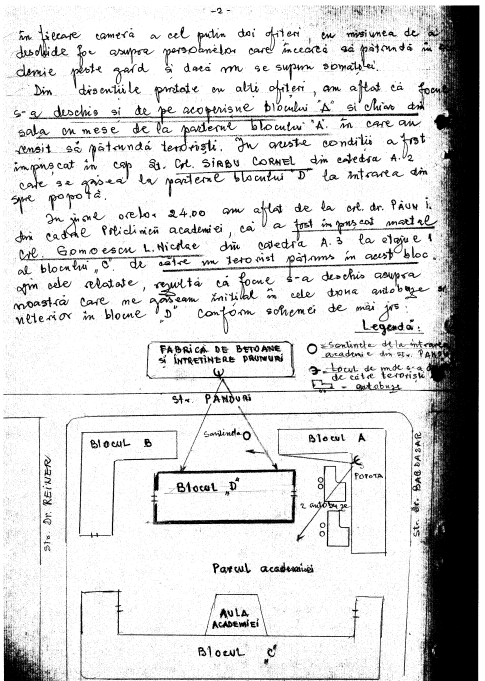 -2-
în fiecare cameră a cel puțin doi ofițeri, cu misiunea de a
deschide foc asupra persoanelor care încearcă să pătrundă în
demie peste gard și dacă nu se supun somației.
Din discuțiile purtate cu alți ofițeri, am aflat că focul
s-a deschis și de pe acoperișul blocului "A" și chiar din
sala cu mese de la parterul blocului "A" în care au
reușit să pătrundă teroriști. În aceste condiții a fost
împușcat în cap Crl. SÎRBU CORNEL din catedra A.2
care se găsea la parterul blocului "D" la intrarea din
spre popotă.
În jurul orelor 24.00 am aflat de la crl. dr. PĂUN I.
din cadrul Policlinicii academiei, că a fost împușcat mortal
Crl. GOMOESCU L. Nicolae din catedra A.3 la etajul 1
al blocului "C" de către un terorist pătruns în acest bloc.
din cele relatate, rezultă că focul s-a deschis asupra
noastră care ne găseam inițial în cele două autobuze și
ulterior în blocul "D" conform schemei de mai jos:
Legendă:
Santinela de la intrare
academie din str. PANDU
Locul de unde s-a
de către teroriști
- autobuze
FABRICA DE BETOANE
ȘI ÎNTREȚINERE DRUMURI
Str. PANDURI
Blocul B
Santinela
Blocul A
POPOTA
Blocul "D"
2 autobuze
Str. Dr. REINER
Str. Dr. BAGDASAR
Parcul academiei
AULA
ACADEMIEI
Blocul "C"